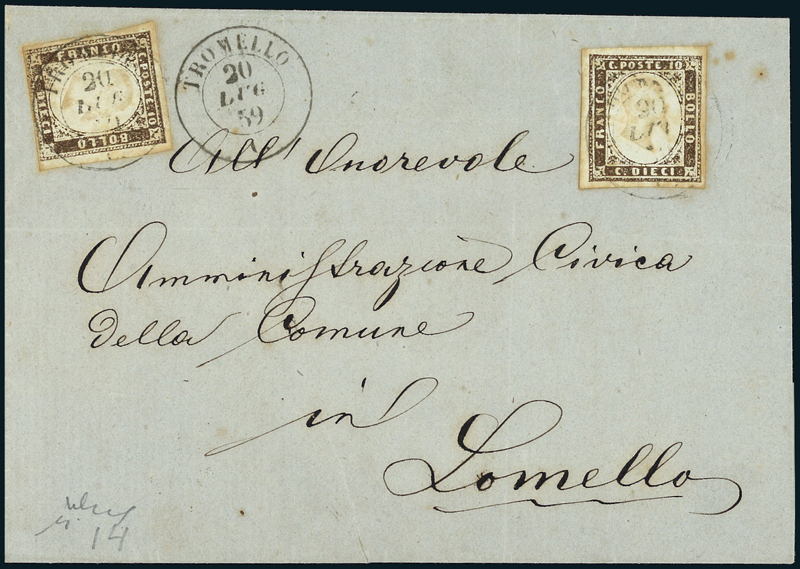 FRANCO
C. POSTE 10
BOLLO
20
LUG
TROMELLO
20
LUG
59
C. POSTE 10
FRANCO
BOLLO
C. DIECI
20
All' Onorevole
Amministrazione Civica
della Comune
in
Lomello
14